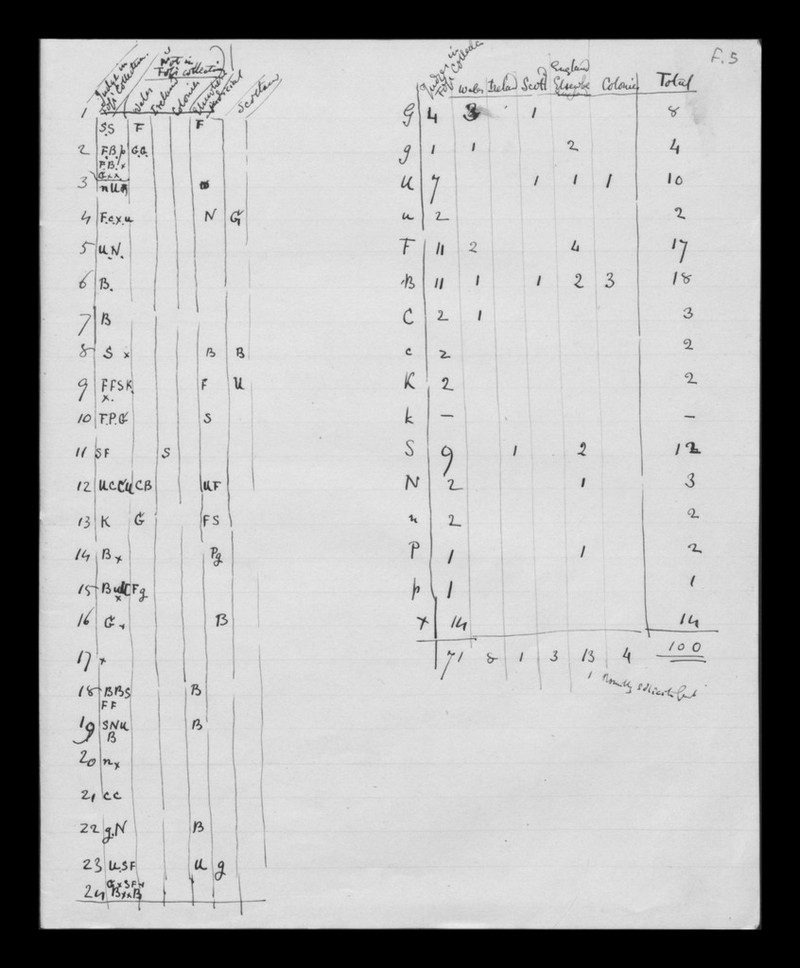 F.5
Judges in
Fos' collection
Not in
Fos' collection
Wales
Ireland
Colonies
Elsewhere
Scotland
1 SS F F
2 F.B.p G.G.
F.B.x
G x x
3 n U B
4 F.c.x.u N G
5 U.N.
6 B.
7 B
8 S x B B
9 F F S K F U
x.
10 F.P.G S
11 SF S
12 U C C U C B U F
13 K G F S
14 B x Pg
15 B u C F g
x
16 G x B
17 x
18 B B S B
F F
19 S N U B
B
20 n x
21 c c
22 g.N B
23 U.S F U g
24 G x S F x
B x x B
Judges in
Fos' collection Wales Ireland Scotl England Elsewhere Colonies Total
G 4 3 1 8
g 1 1 2 4
U 7 1 1 1 10
u 2 2
F 11 2 4 17
B 11 1 1 2 3 18
C 2 1 3
c 2 2
K 2 2
k – –
S 9 1 2 12
N 2 1 3
n 2 2
P 1 1 2
p 1 1
x 14 14
71 8 1 3 13 4 100
1